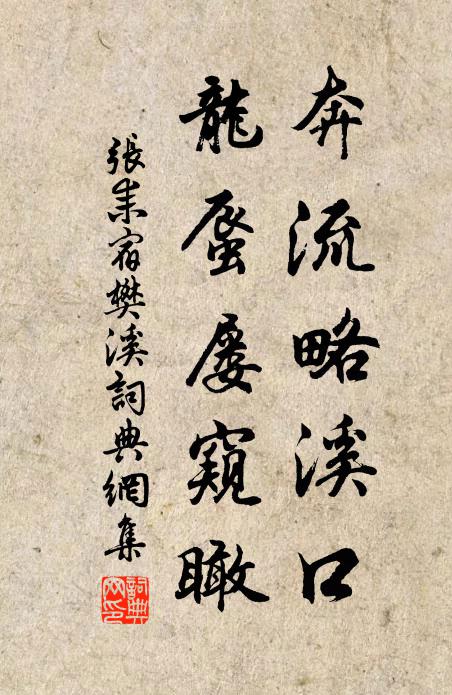 奔流略溪口
龍蜃屢窺瞰
張耒宿樊溪詞典網集
詞典网印